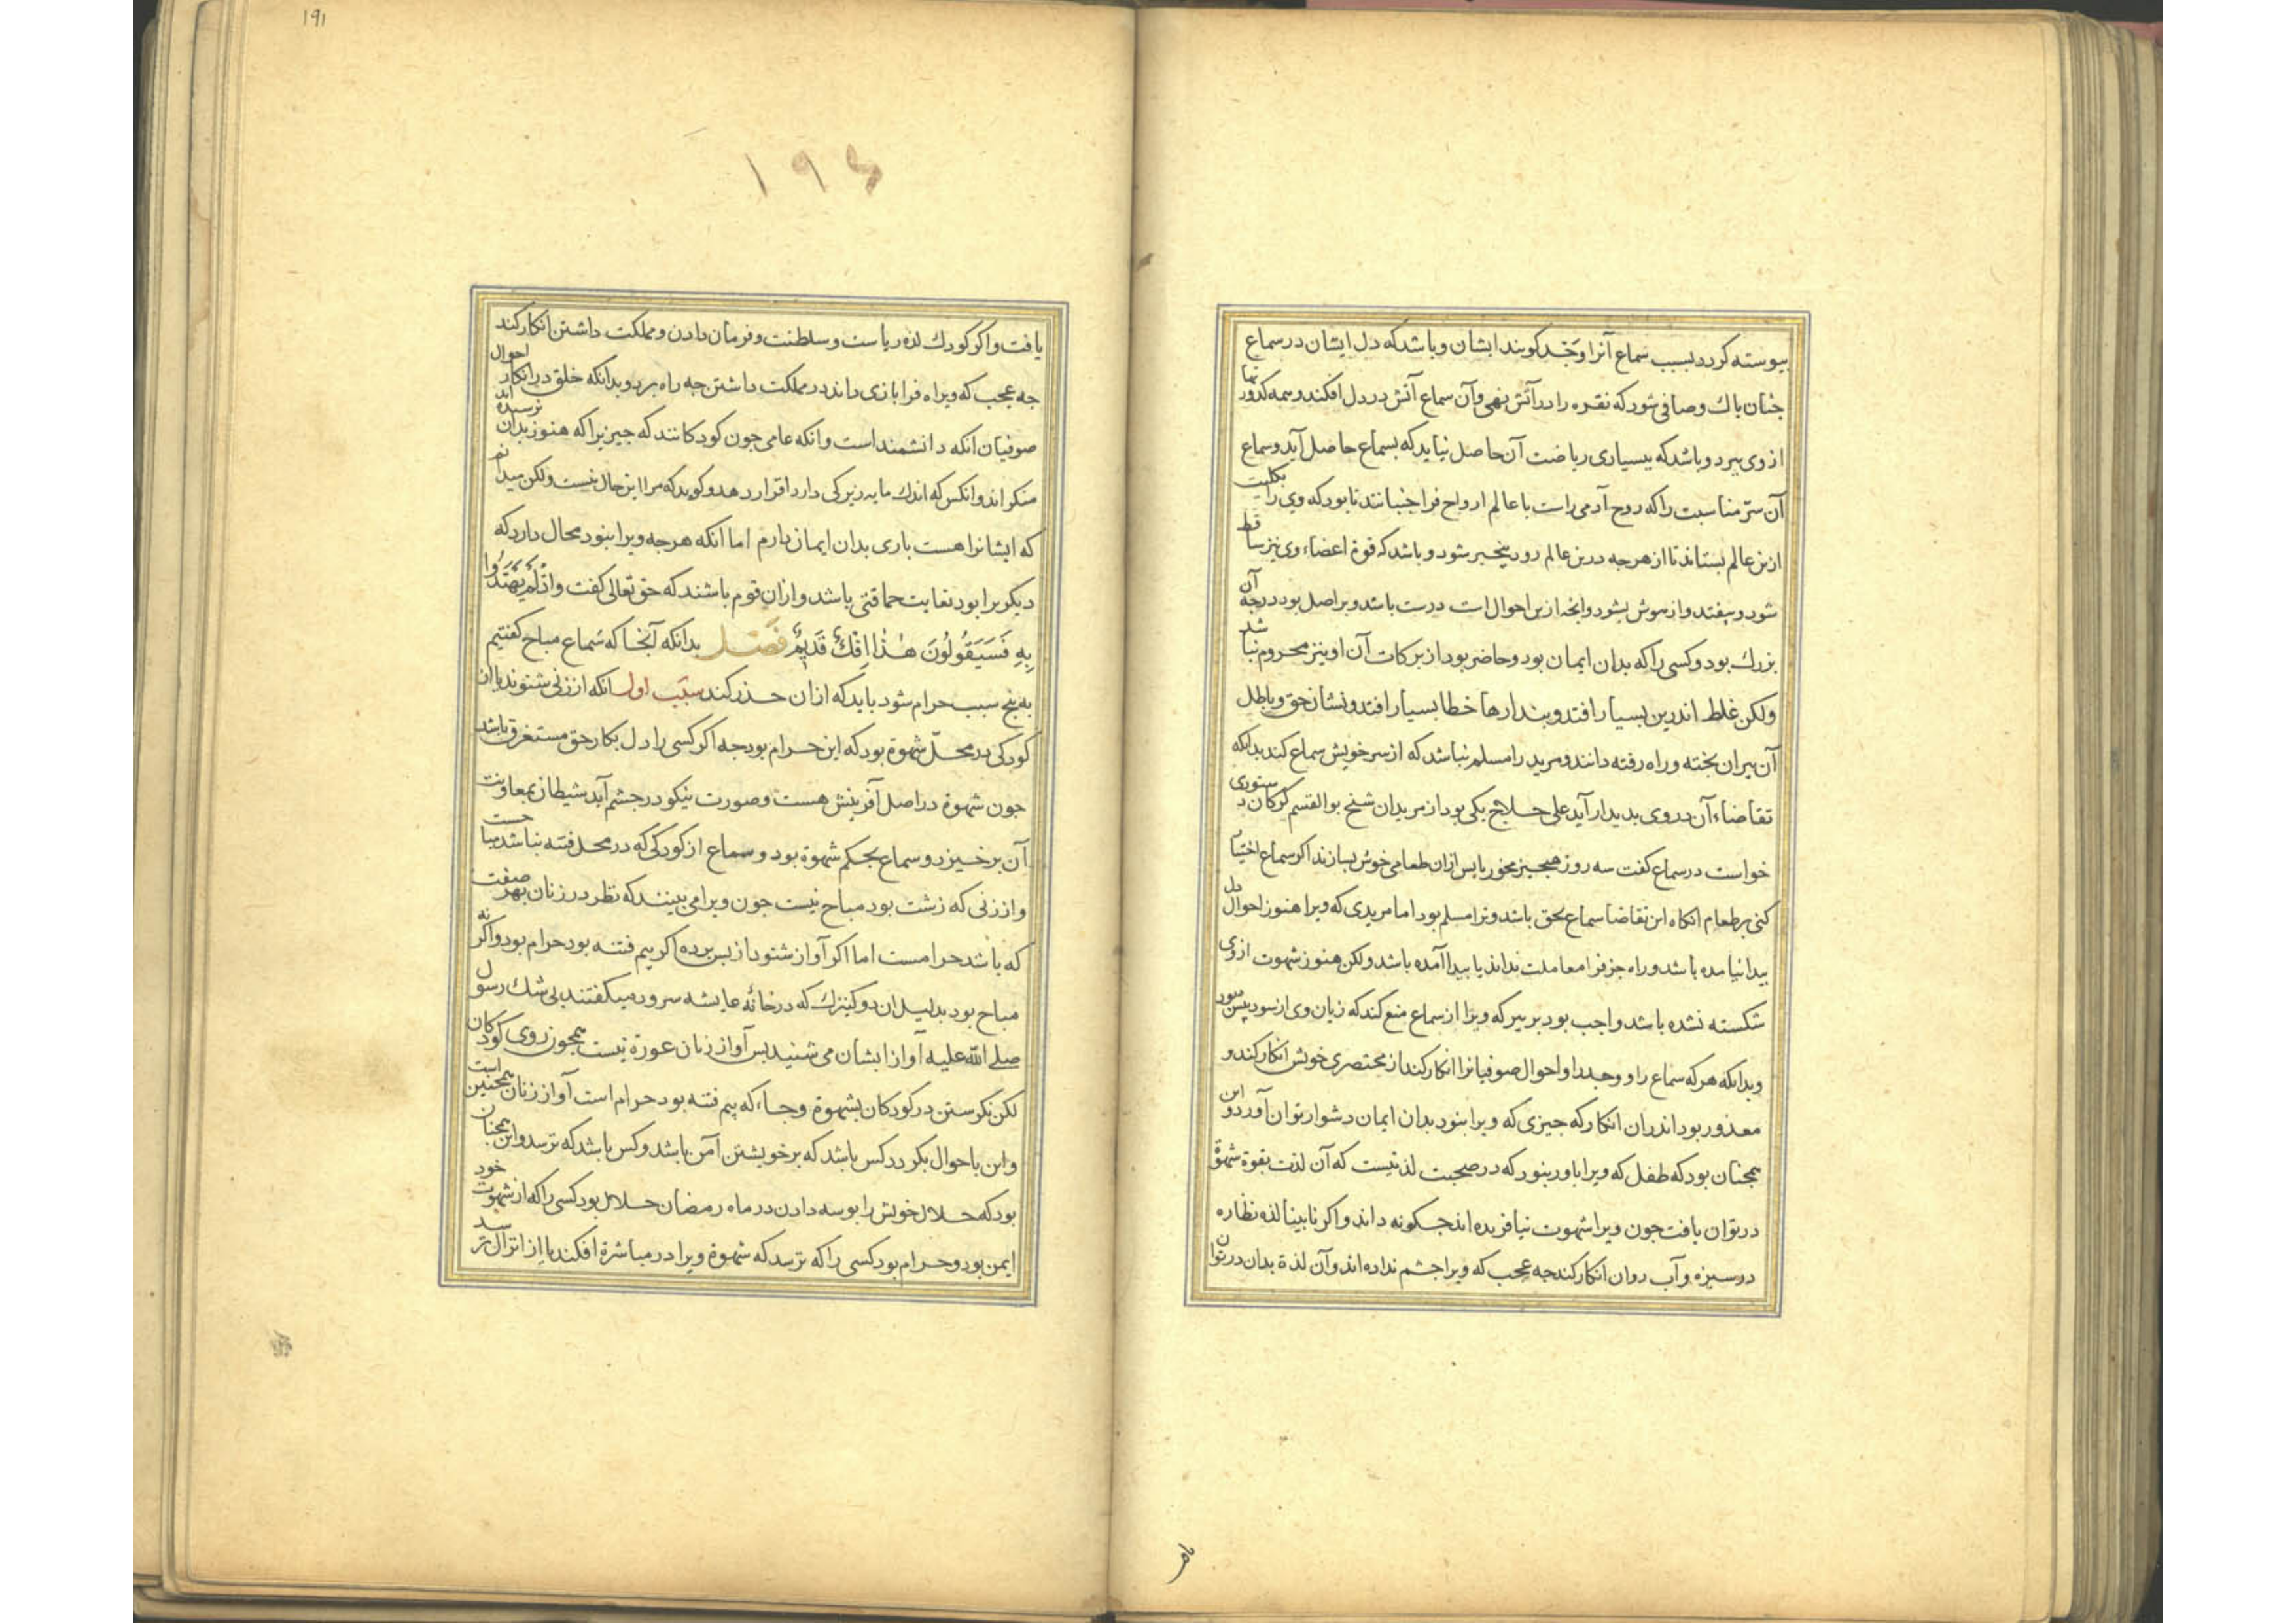 پیوسته کردد بسبب سماع آنرا وَجْد کویند ایشان و باشد که دل ایشان در سماع
جنان باك و صافی شود که نقره را در آتش نهی و آن سماع آتش در دل افکند و همه کدورتها
از وی ببرد و باشد که ببسیاری ریاضت آن حاصل نیاید که بسماع حاصل آید و سماع
آن سرّ مناسبت را که روح آدمی راست با عالم ارواح فرا جنباند تا بود که وی را بکلیت
ازین عالم بستاند تا از هرجه درین عالم رود بیخبر شود و باشد که قوة اعضاء وی نیز ساقط
شود و بیفتد و از هوش بشود و آنجه ازین احوال است درست باشد و بر اصل بود درجه آن
بزرك بود و کسی را که بدان ایمان بود و حاضر بود از برکات آن او نیز محروم نباشد
ولکن غلط اندرین بسیار افتد و بندارها خطا بسیار افتد و نشان حق و باطل
آن بیران بخته و راه رفته دانند و مرید را مسلم نباشد که از سر خویش سماع کند بدانکه
تقاضاء آن در وی بدیدار آید علی حلاج یکی بود از مریدان شیخ بو القسم کرکان دستوری
خواست در سماع کفت سه روز هیجیز مخور بایس ازان طعامی خوش بسازند اکر سماع اختیار
کنی بر طعام انکاه این تقاضا سماع بحق باشد و ترا مسلم بود اما مریدی که ویرا هنوز احوال دل
بیدا نیامده باشد و راه جز فرا معاملت نداند یا بیدا آمده باشد ولکن هنوز شهوت از وی
شکسته نشده باشد واجب بود بر بیر که ویرا از سماع منع کند که زیان وی از سود بیش بود
و بدانکه هر که سماع را و وجد را و احوال صوفیانرا انکار کند از مختصری خویش انکار کند و
معذور بود اندران انکار که جیزی که ویرا نبود بدان ایمان دشوار توان آورد و این
همجنان بود که طفل که ویرا باور نبود که در صحبت لذتیست که آن لذت بقوة شهوة
در توان یافت جون ویرا شهوت نیافریده اند جکونه داند و اکر نابینا لذه نظاره
در سبزه و آب روان انکار کند جه عجب که ویرا جشم نداده اند و آن لذة بدان در توان
یافت
۱۹۱
۱۹۶
یافت و اکر کودك لذه ریاست و سلطنت و فرمان دادن و مملکت داشتن انکار کند
جه عجب که ویراه فرا بازی داند در مملکت داشتن جه راه برد و بدانکه خلق در انکار احوال
صوفیان انکه دانشمند است و انکه عامی جون کودکانند که جیزیرا که هنوز بدان نرسیده اند
منکر اند و انکس که اندك مایه زیرکی دارد اقرار دهد و کوید که مرا این حال نیست ولکن میدانم
که ایشانرا هست باری بدان ایمان دارم اما انکه هرجه ویرا نبود محال دارد که
دیکریرا بود بغایت حماقتی باشد و ازان قوم باشند که حق تعالی کفت وَاِذْلَمْ یَهْتَدُوا
بِهِ فَسَیَقُولُونَ هٰذٰا اِفْكٌ قَدِیمٌ فَصَل بدانکه آنجا که سَماع مباح کفتیم
به بنج سبب حرام شود باید که ازان حذر کند سبَب اول انکه از زنی شنوند یا از
کودکی در محلّ شهوة بود که این حرام بود جه اکر کسی را دل بکار حق مستغرق باشد
جون شهوة در اصل آفرینش هست و صورت نیکو در جشم آید شیطان بمعاونت
آن برخیزد و سماع بحکم شهوة بود و سماع از کودکی که در محل فتنه نباشد مباحست
و از زنی که زشت بود مباح نیست جون ویرا می بینند که نظر در زنان بهر صفت
که باشد حرامست اما اکر آواز شنود از بس برده اکر بیم فتنه بود حرام بود و اکر نه
مباح بود بدلیل ان دو کنیزك که در خانه عایشه سرود میکفتند بی شك رسول
صلے الله علیه آواز ایشان می شنید بس آواز زنان عورة نیست همجون روی کودکان
لکن نکرستن در کودکان بشهوة و جاء که بیم فتنه بود حرام است آواز زنان همجنین است
و این باحوال بکردد کس باشد که بر خویشتن آمن باشد و کس باشد که ترسد و این همجنان
بود که حلال خویش را بوسه دادن در ماه رمضان حلال بود کسی را که از شهوت خود
ایمن بود و حرام بود کسی را که ترسد که شهوة ویرا در مباشرة افکند یا از انزال ترسد